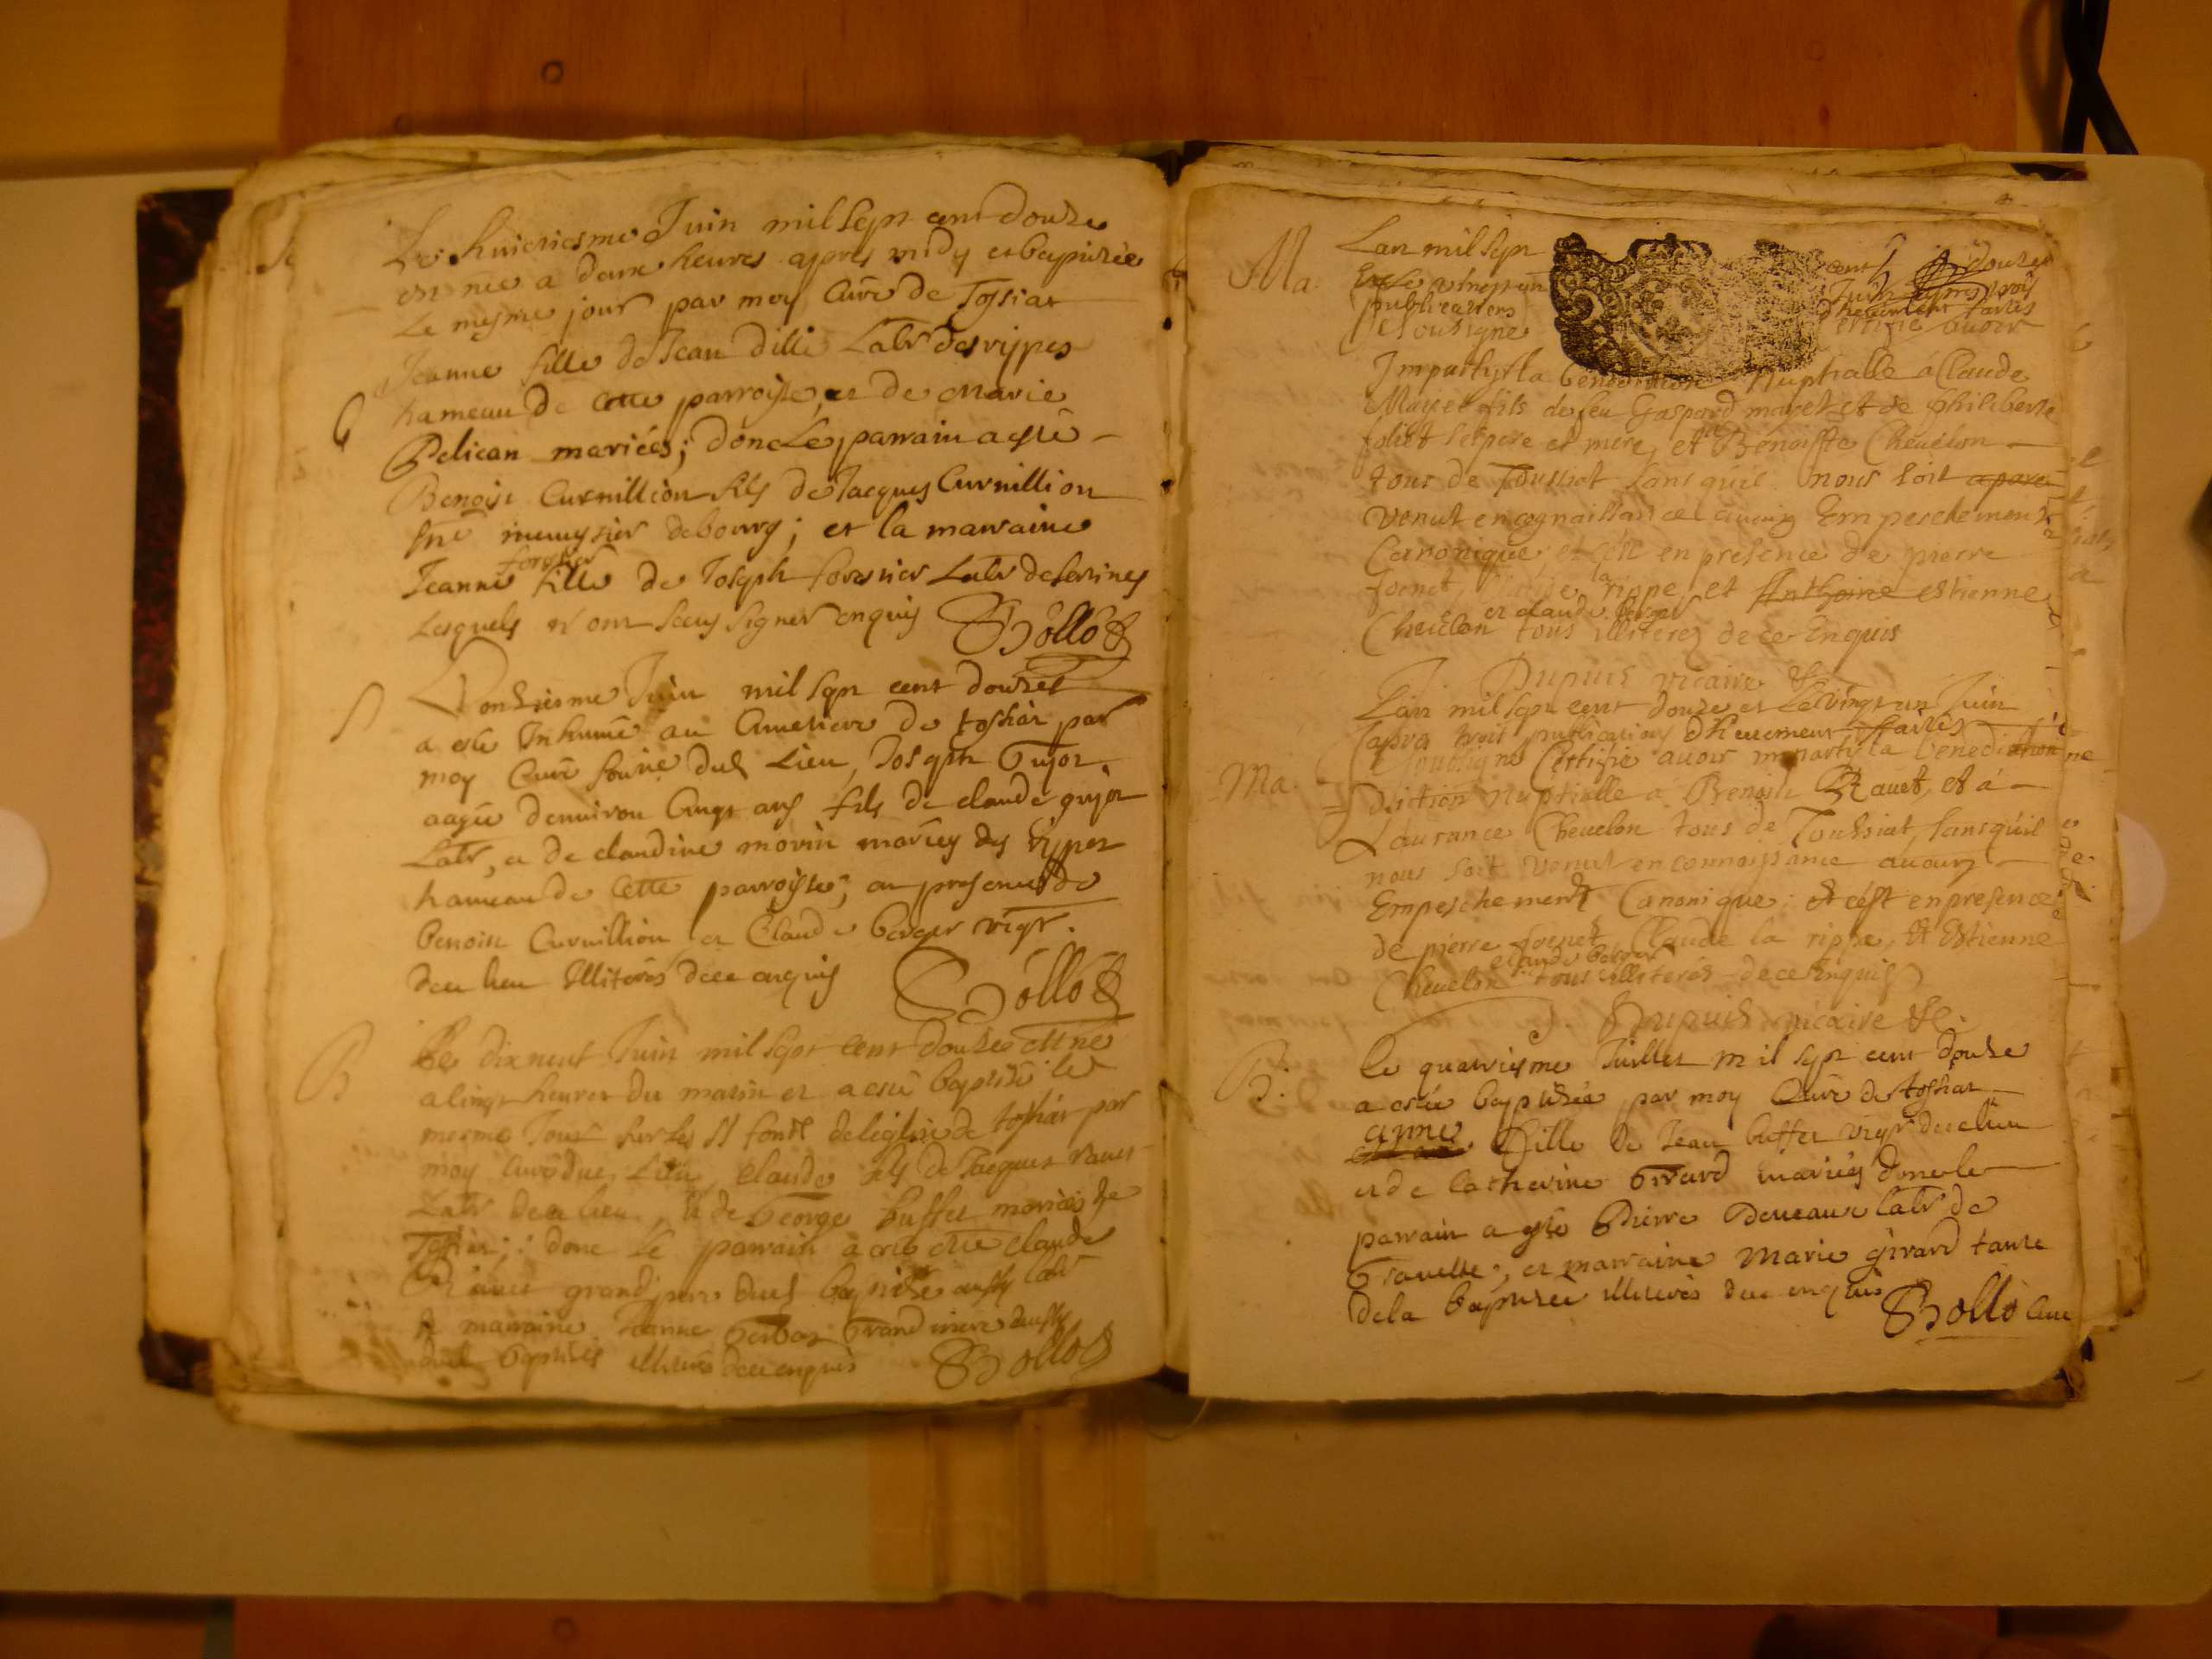 Le huictiesme Juin mil sept cent douze
est née a deux heures apres midy et baptizée
le mesme jour par moy Curé de Tossiat
Jeanne fille de Jean dille Labr des rippes
hameau de cette parroisse, et de Marie
Pelican mariés; donc le parrain a esté
Benoist Curnillion fils de Jacques Curnillion
de bourg; et la marraine
forestier
Jeanne fille de Joseph forestier Labr de
Lesquels n'ont sceus signer enquis Bollod
B
S
L'onziesme Juin mil sept cent douze
a esté Inhumé au Cimetiere de tossiat par
moy Curé dud Lieu, Joseph Gujot
aagée d'environ Cinqt ans fils de claude gujot
Labr, et de claudine morin mariés des rippes
hameau de Cette parroisse; en presence de
benoist Curnillion et Claude berger vigr.
de ce lieu Illiterés de ce enquis Bollod
B
Le dixneuf Juin mil sept cent douze est né
a cinqt heures du matin et a esté baptisé le
mesme Jour sur les fonds de l'eglise de tossiat par
moy Curé dud Lieu, claude fils de Jacques ravet
Labr de ce lieu, et de George buffet mariés de
Tossiat; donc le parrain a esté claude
Ravet grand pere dud baptisé aussy labr
et marraine Jeanne grand mere
dud baptisés illiterés de ce enquis Bollod
Ma
Lan mil sept cent douze
et le vingt un Juin apres trois
publications dheuement faites
Je soubsigné certifie avoir
Imparty la benediction Nuptialle á Claude
Mayet fils de feu Gaspard mayet et de philiberte
ses pere et mere, et á Benoiste Chevelon
tous de Toussiat sans qu'il nous soit
Venut en cognoissance aucung Empeschement
Canonique, et c'est en presence de pierre
fornet, Claude la rippe, et Anthoine estienne
et claude berger
Chevelon tous illiterez de ce Enquis
Dupuis vicaire &c.
Ma.
Lan mil sept cent douze et Le vingt un Juin
apres trois publications dheuement faites
Je soubsigné Certifie avoir imparty la benediction
diction Nuptialle a Benoist Ravet, et á
Laurance Chevelon tous de Toussiat, sans qu'il
nous soit Venut en connoissance aucung
Empeschement Canonique: et c'est en presence
de pierre fornet, Claude la rippe, et Estienne
claude berger
Chevelon tous illiterés de ce Enquis
Dupuis vicaire &c.
B.
le quatriesme Juillet mil sept cent douze
a estée baptizée par moy Curé de tossiat
anne fille de Jean buffet vigr de ce lieu
et de Catherine Girard mariés donc le
parrain a esté Pierre Deveaux labr de
Gravelle; et marraine Marie girard tante
de la baptizée illiterés de ce enquis Bollod Curé